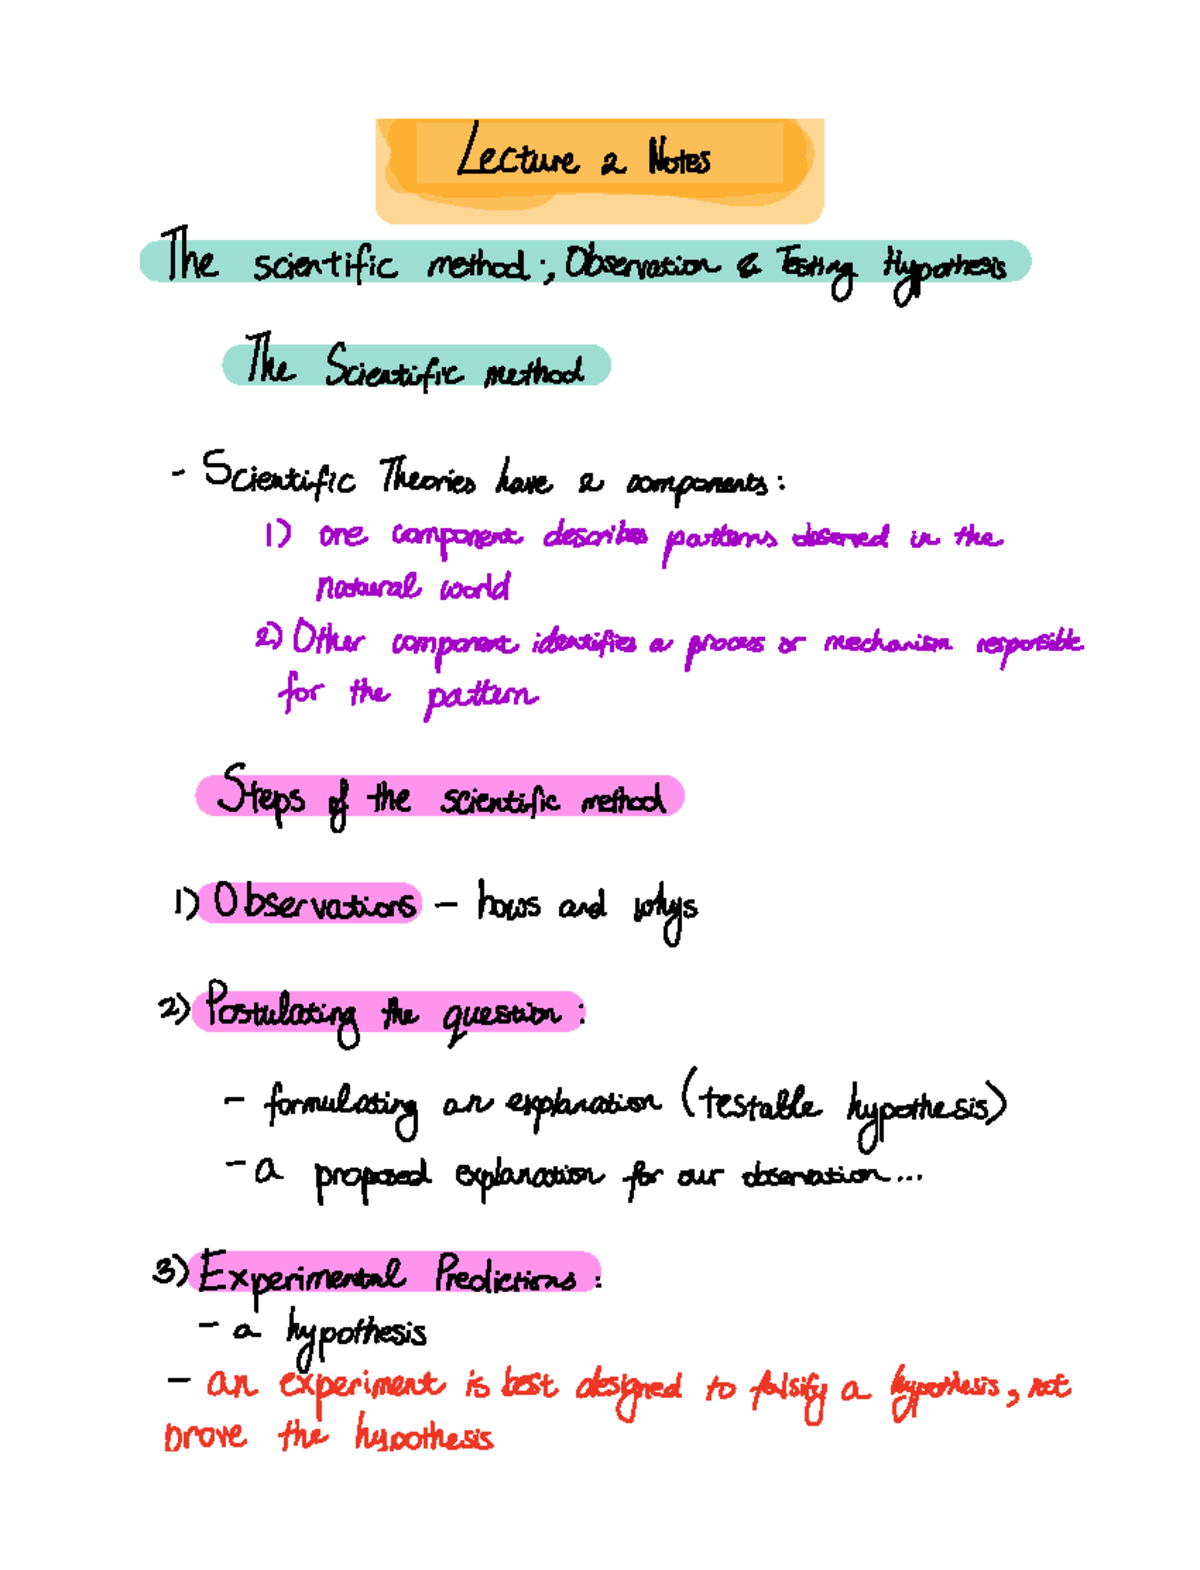 Lecture 2 Notes
The scientific method; Observation & Testing Hypothesis
The Scientific method
- Scientific Theories have 2 components:
1) one component describes patterns observed in the
natural world
2) Other component identifies a process or mechanism responsible
for the pattern
Steps of the scientific method
1) Observations - hows and whys
2) Postulating the question:
- formulating an explanation (testable hypothesis)
- a proposed explanation for our observation...
3) Experimental Predictions:
- a hypothesis
- an experiment is best designed to falsify a hypothesis, not
prove the hypothesis